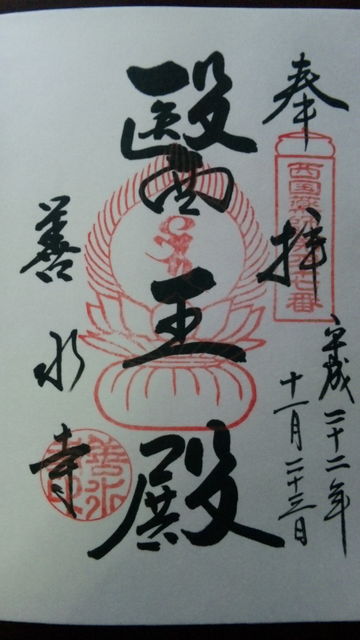 奉拝
西国薬師 七番
平成二十二年
十一月二十三日
醫王殿
善水寺